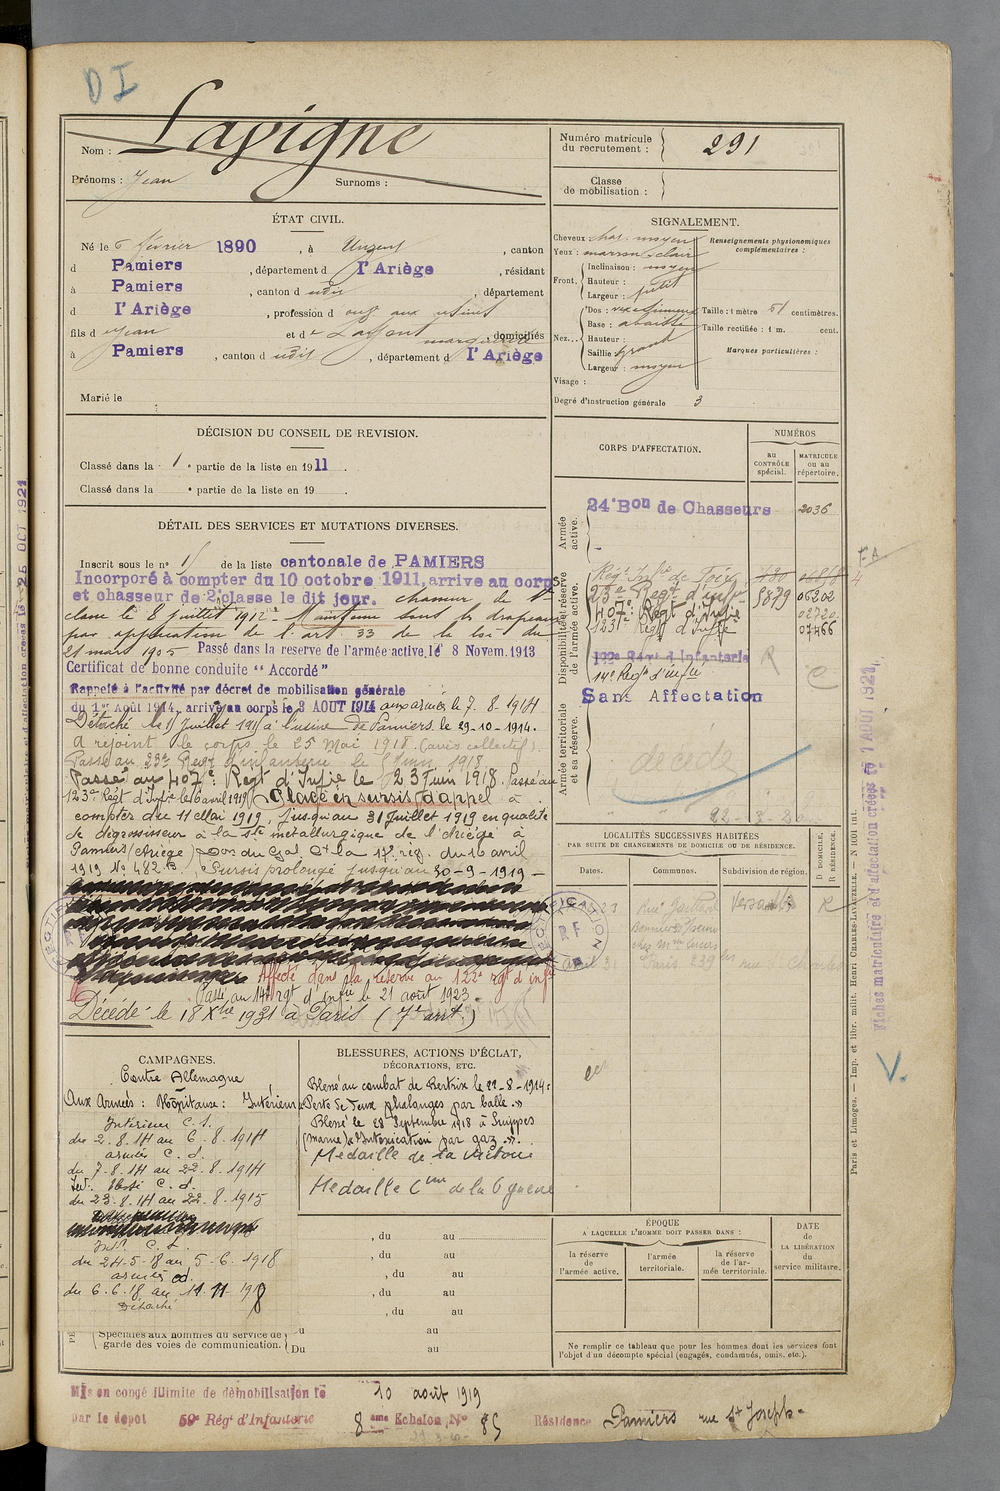 DI
Nom : Lavigne
Prénoms : Jean Surnoms :
Numéro matricule du recrutement : 291
Classe de mobilisation :
ÉTAT CIVIL.
Né le 6 février 1890, à Unzent, canton
d Pamiers, département d l'Ariège, résidant
à Pamiers, canton d udit, département
d l'Ariège, profession d ouvr aux usines
fils d Jean et de Laffont marguerite domiciliés
à Pamiers, canton d udit, département d l'Ariège
Marié le
SIGNALEMENT.
Cheveux chat. moyen
Yeux : marron clair
Front. Inclinaison : moyen
Hauteur :
Largeur : petit
Nez... Dos : rect sinueux
Base : abaissée
Hauteur :
Saillie grand
Largeur : moyen
Visage :
Degré d'instruction générale 3
Renseignements physionomiques complémentaires :
Taille : 1 mètre 51 centimètres.
Taille rectifiée : 1 m. cent.
Marques particulières :
DÉCISION DU CONSEIL DE REVISION.
Classé dans la 1e partie de la liste en 1911.
Classé dans la e partie de la liste en 19
DÉTAIL DES SERVICES ET MUTATIONS DIVERSES.
Inscrit sous le n° 11 de la liste cantonale de PAMIERS
Incorporé à compter du 10 octobre 1911, arrive au corps
et chasseur de 2e classe le dit jour. chasseur de 1re
classe le 8 juillet 1912. Maintenu sous les drapeaux
par application de l'art 33 de la loi du
21 mars 1905. Passé dans la reserve de l'armée active, le 8 Novem. 1913
Certificat de bonne conduite "Accordé"
Rappelé à l'activité par décret de mobilisation générale
du 1er Août 1914, arrivé au corps le 3 AOUT 1914 aux armées le 7.8.1914
Détaché à l'usine de Pamiers le 29-10-1914.
A rejoint le corps le 25 Mai 1918 (avis collectif).
Passé au 23e Regt d'infanterie le 6 Juin 1918
Passé au 407e Regt d'Infie le 23 Juin 1918. Passé au
123e Régt d'Infie le 6 avril 1919 Placé en sursis d'appel à
compter du 11 Mai 1919, jusqu'au 31 Juillet 1919 en qualité
de dégrossisseur à la Sté métallurgique de l'Ariège à
Pamiers (Ariège) Don du Gal Ct la 17e rég. du 16 avril
1919 No 482 Sursis prolongé jusqu'au 30-9-1919 -
Affecté dans la réserve au 122e rgt d'infie
Passé au 14e rgt d'infie le 21 août 1923.
Décédé le 18 Xbre 1931 à Paris (7e arrt.)
CORPS D'AFFECTATION.
NUMÉROS
AU CONTRÔLE SPÉCIAL.
MATRICULE OU AU RÉPERTOIRE.
Armée active.
24e Bon de Chasseurs 2036
Disponibilité et réserve de l'armée active.
Régt Infie de Foix 480
23e Regt d'infie 5879 06302
407e Regt d'Infie 02720
123e Régt d'Infie 07466
122e Régt d'Infanterie R
14e Regt d'infie C
Armée territoriale et sa réserve.
Sans Affectation
décédé
LOCALITÉS SUCCESSIVES HABITÉES
PAR SUITE DE CHANGEMENTS DE DOMICILE OU DE RÉSIDENCE.
Dates. Communes. Subdivision de région. D DOMICILE. R RÉSIDENCE.
Versailles R
Paris
CAMPAGNES.
Contre Allemagne
Aux Armées : Hôpitaux : Intérieur
Intérieur C.S.
du 2.8.14 au 6.8.1914
armées C.d.
du 7.8.14 au 22.8.1914
C.d.
du 23.8.14 au 22.8.1915
Int. C.S.
du 24-5-18 au 5-6.1918
armées C.d.
du 6.6.18 au 11.11.1918
Détaché
BLESSURES, ACTIONS D'ÉCLAT, DÉCORATIONS, ETC.
Blessé au combat de Bertrix le 22-8-1914.
"Perte de deux phalanges par balle."
Blessé le 28 Septembre 1918 à Suippes
(Marne) "Intoxication par gaz".
Médaille de la Victoire
Médaille Cive de la Gde guerre
, du au
, du au
, du au
, du au
, du au
Spéciales aux hommes du service de garde des voies de communication.
Du au
Du au
ÉPOQUE
A LAQUELLE L'HOMME DOIT PASSER DANS :
la réserve de l'armée active.
l'armée territoriale.
la réserve de l'armée territoriale.
DATE DE LA LIBÉRATION du service militaire.
Ne remplir ce tableau que pour les hommes dont les services font
l'objet d'un décompte spécial (engagés, condamnés, omis, etc.).
Mis en congé illimité de démobilisation le 10 août 1919
par le depot 59e Régt d'Infanterie 8ème Echelon No 85 Résidence Pamiers rue St Joseph
Fiches matriculaire et d'affectation créées le 1 AOUT 1921
V.
Paris et Limoges. — Imp. et libr. milit. Henri CHARLES-LAVAUZELLE. — N 1001 int.
25 OCT 1921